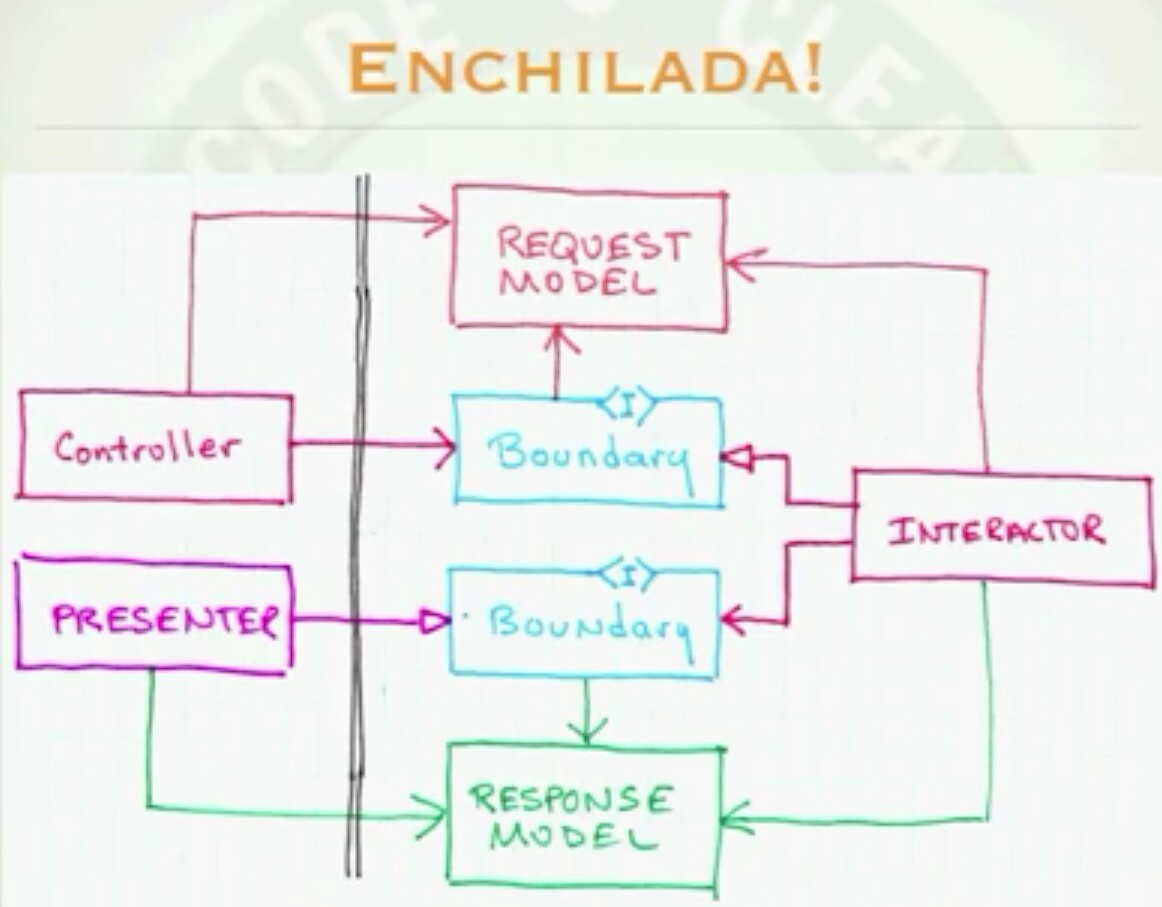 ENCHILADA!
CODE
CLEA
REQUEST
MODEL
Controller
<I>
Boundary
INTERACTOR
PRESENTER
<I>
Boundary
RESPONSE
MODEL